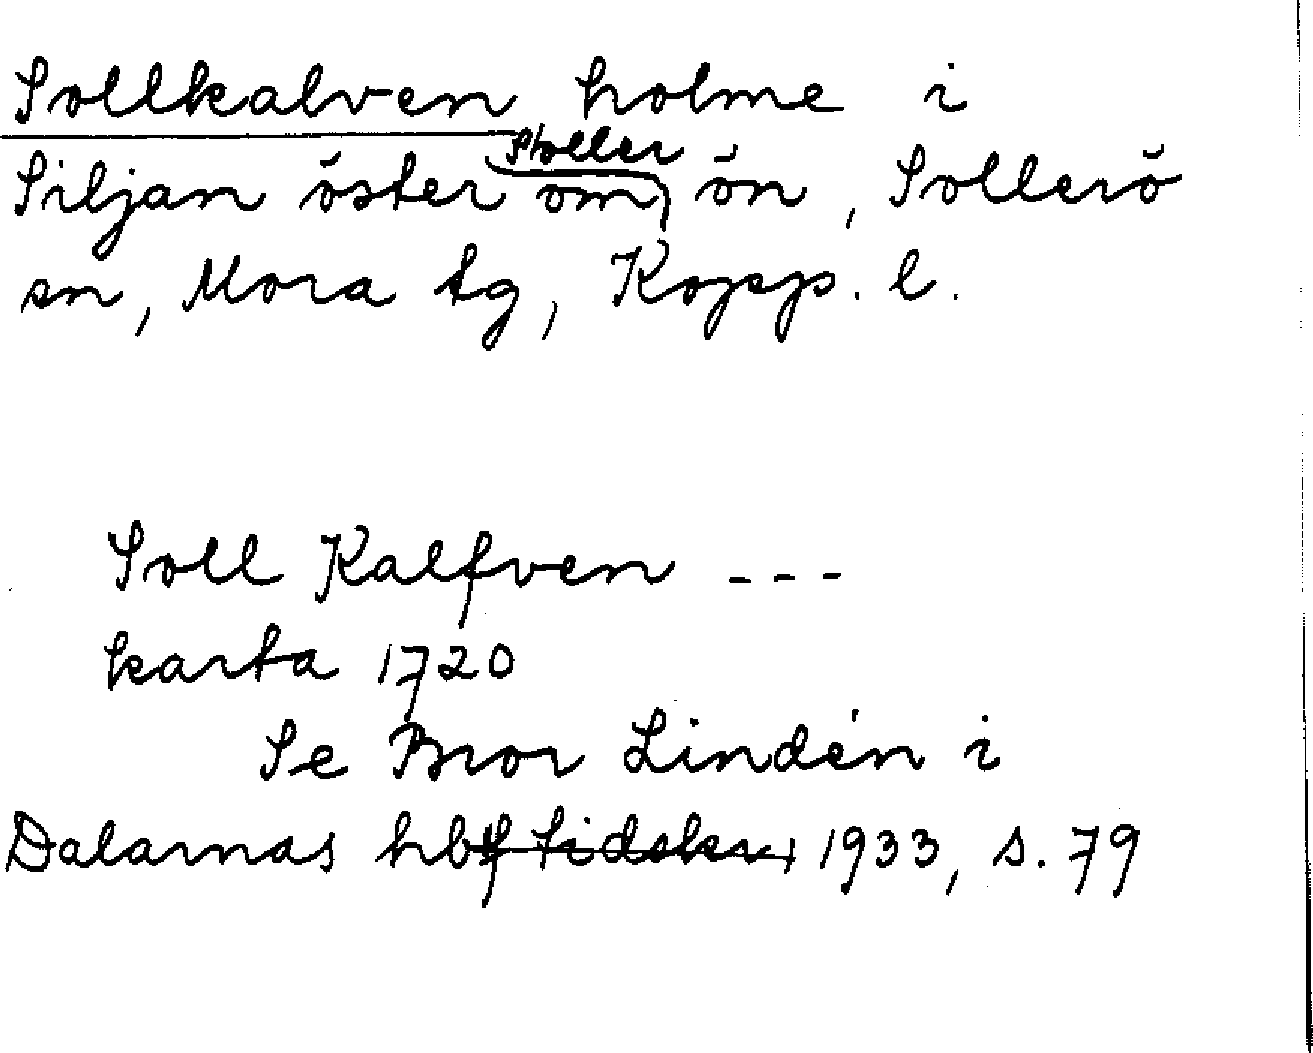 Sollkalven holme i
Siljan öster om Soller ön, Sollerö
sn, Mora tg, Kopp. l.
Soll Kalfven ---
karta 1720
Se Bror Lindén i
Dalarnas hbf tidskr, 1933, s. 79